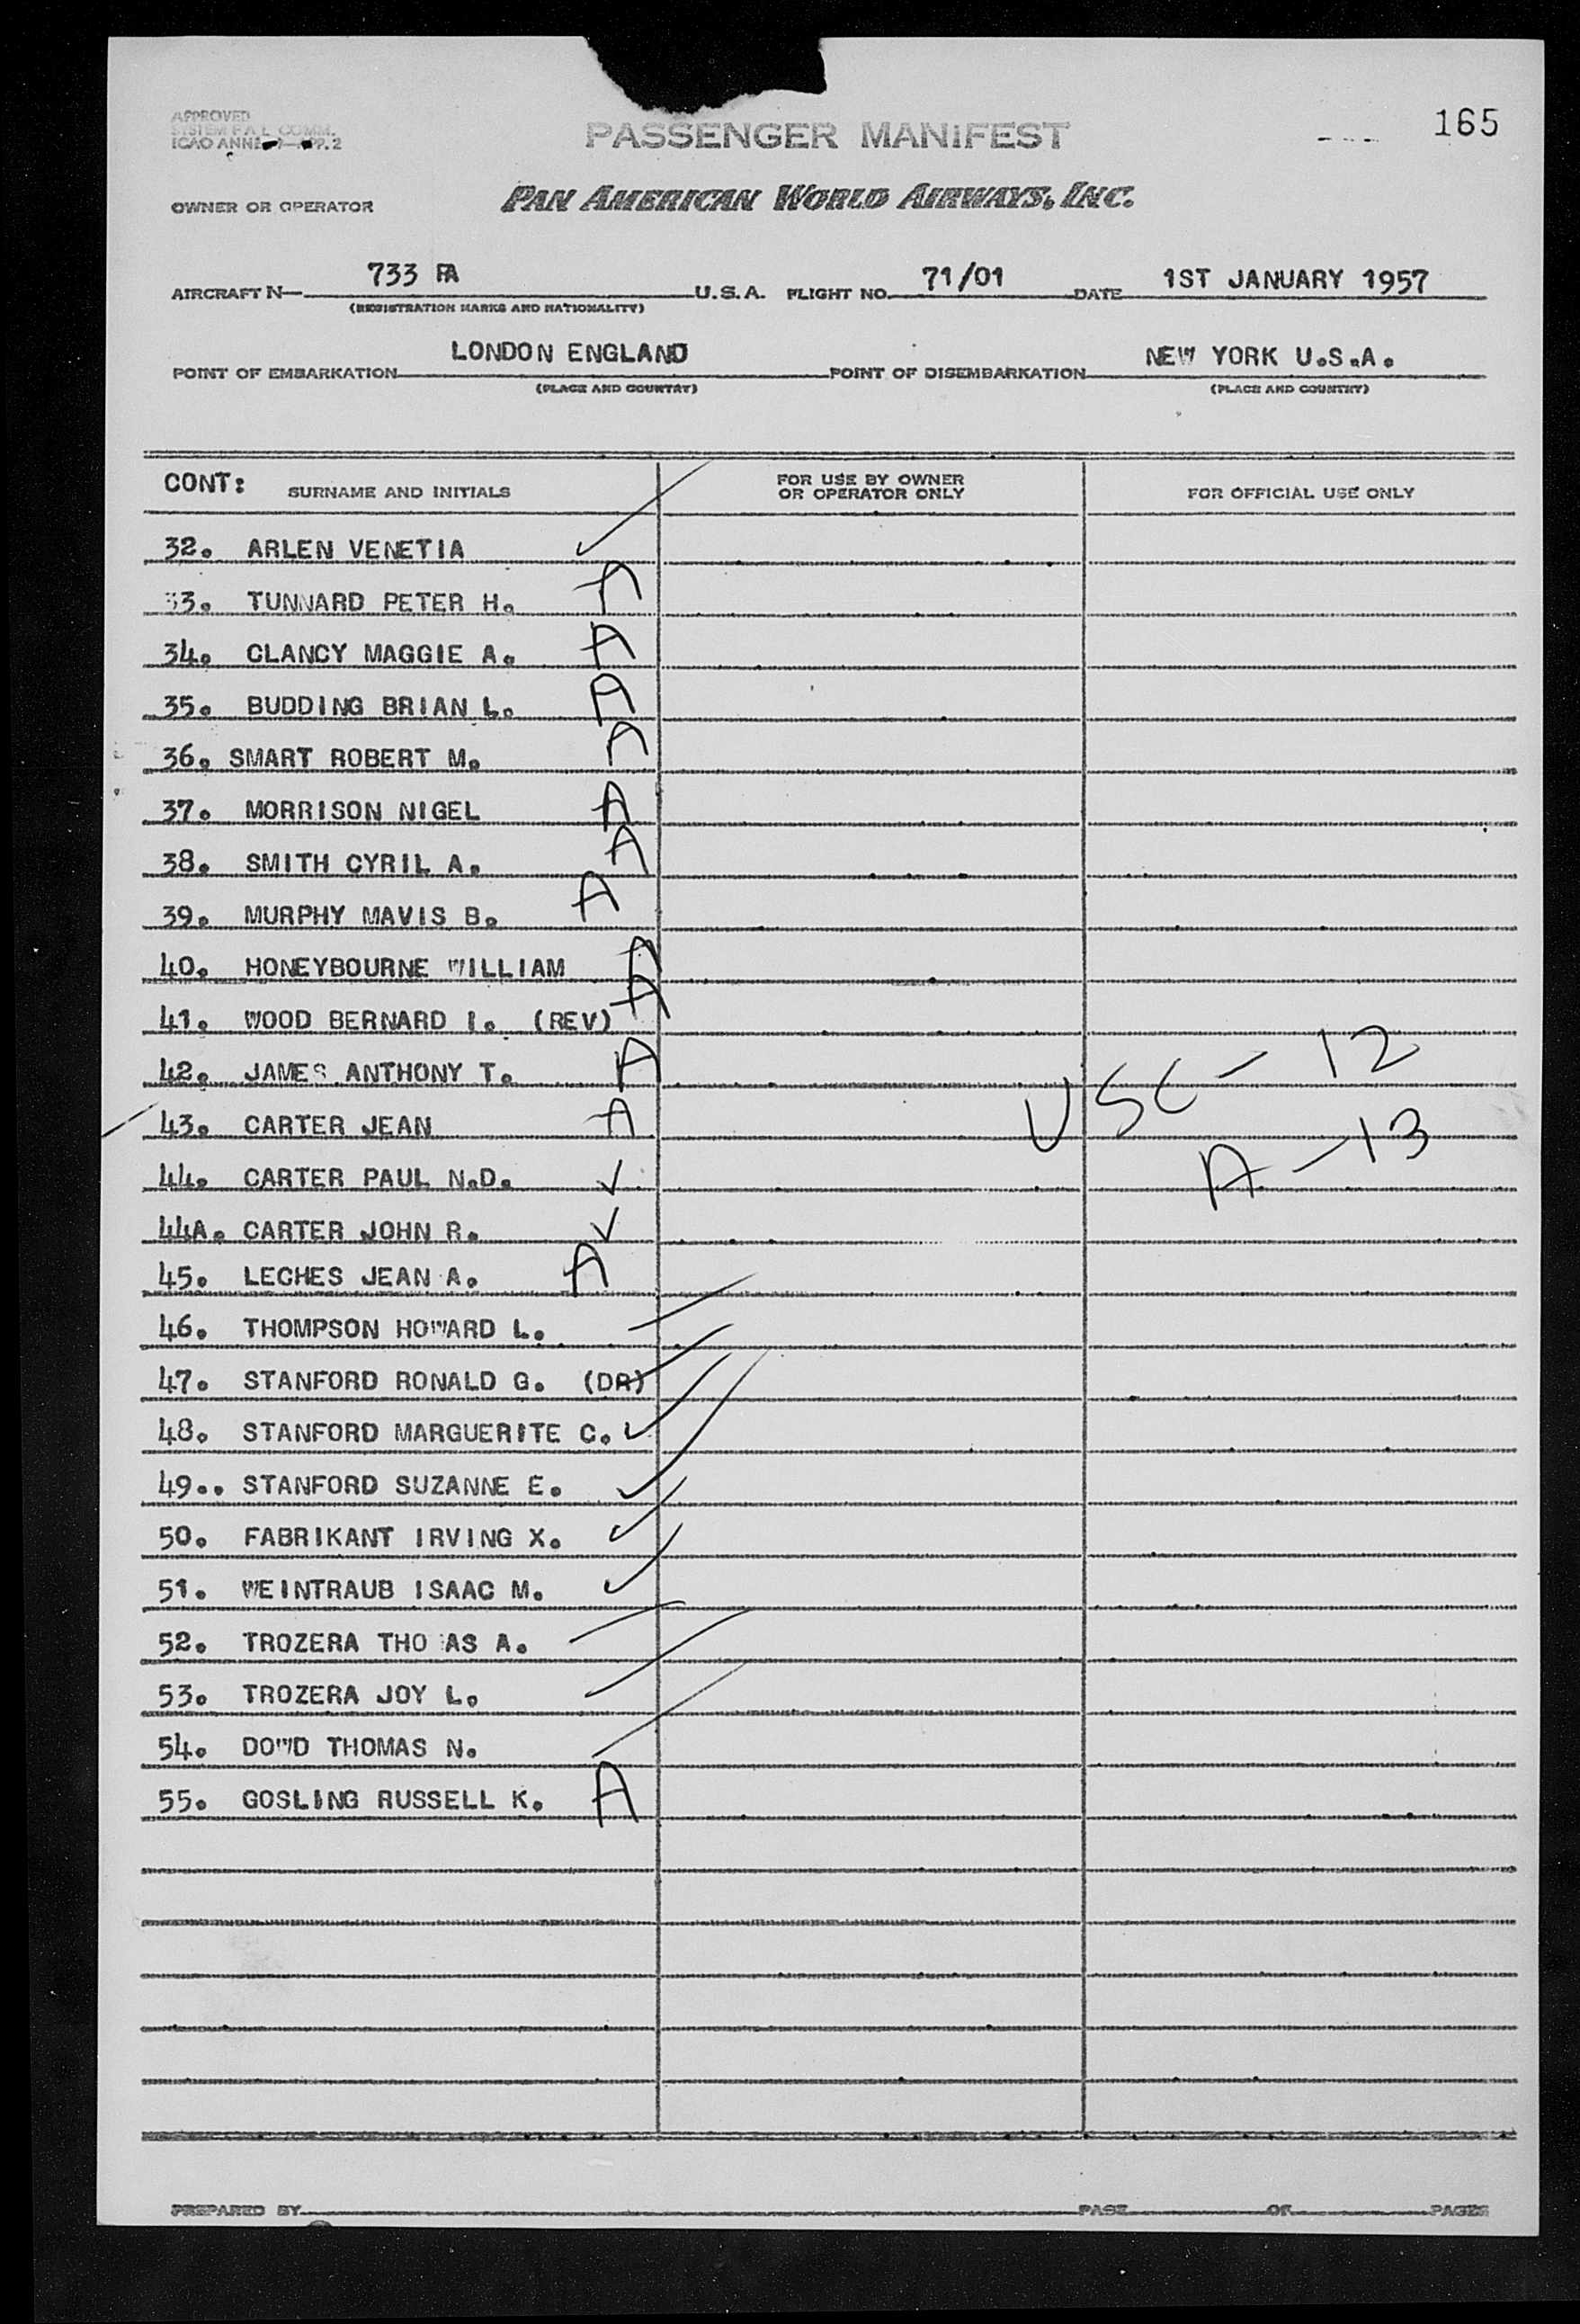 165
APPROVED
SYSTEM F.A.L. COMM.
ICAO ANNEX 9—APP. 2
PASSENGER MANIFEST
OWNER OR OPERATOR PAN AMERICAN WORLD AIRWAYS, INC.
AIRCRAFT N— 733 PA U.S.A. FLIGHT NO. 71/01 DATE 1ST JANUARY 1957
(REGISTRATION MARKS AND NATIONALITY)
POINT OF EMBARKATION LONDON ENGLAND POINT OF DISEMBARKATION NEW YORK U.S.A.
(PLACE AND COUNTRY) (PLACE AND COUNTRY)
CONT: SURNAME AND INITIALS FOR USE BY OWNER OR OPERATOR ONLY FOR OFFICIAL USE ONLY
32. ARLEN VENETIA ✓
33. TUNNARD PETER H. A
34. CLANCY MAGGIE A. A
35. BUDDING BRIAN L. A
36. SMART ROBERT M. A
37. MORRISON NIGEL A
38. SMITH CYRIL A. A
39. MURPHY MAVIS B. A
40. HONEYBOURNE WILLIAM A
41. WOOD BERNARD I. (REV) A
42. JAMES ANTHONY T. A USC - 12
43. CARTER JEAN A A - 13
44. CARTER PAUL N.D. ✓
44A. CARTER JOHN R. ✓
45. LECHES JEAN A. A
46. THOMPSON HOWARD L.
47. STANFORD RONALD G. (DR)
48. STANFORD MARGUERITE C. ✓
49.. STANFORD SUZANNE E. ✓
50. FABRIKANT IRVING X. ✓
51. WEINTRAUB ISAAC M. ✓
52. TROZERA THO AS A.
53. TROZERA JOY L.
54. DOWD THOMAS N.
55. GOSLING RUSSELL K. A
PREPARED BY PAGE OF PAGES